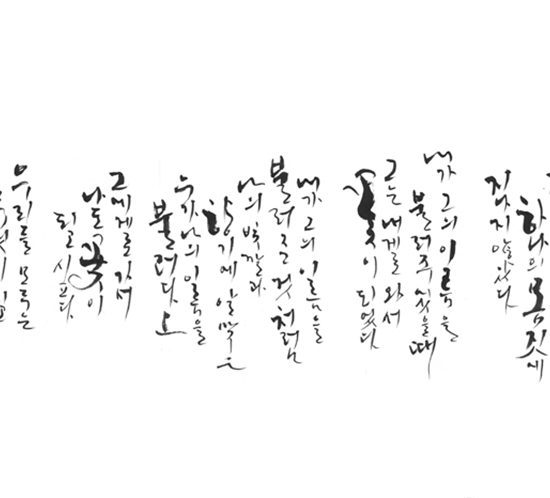 하나의 몸짓에
지나지 않았다
내가 그의 이름을
불러주었을 때
그는 내게로 와서
꽃이 되었다
내가 그의 이름을
불러준 것처럼
나의 빛깔과
향기에 알맞은
누가 나의 이름을
불러다오
그에게로 가서
나도 꽃이
되고 싶다
우리들 모두는